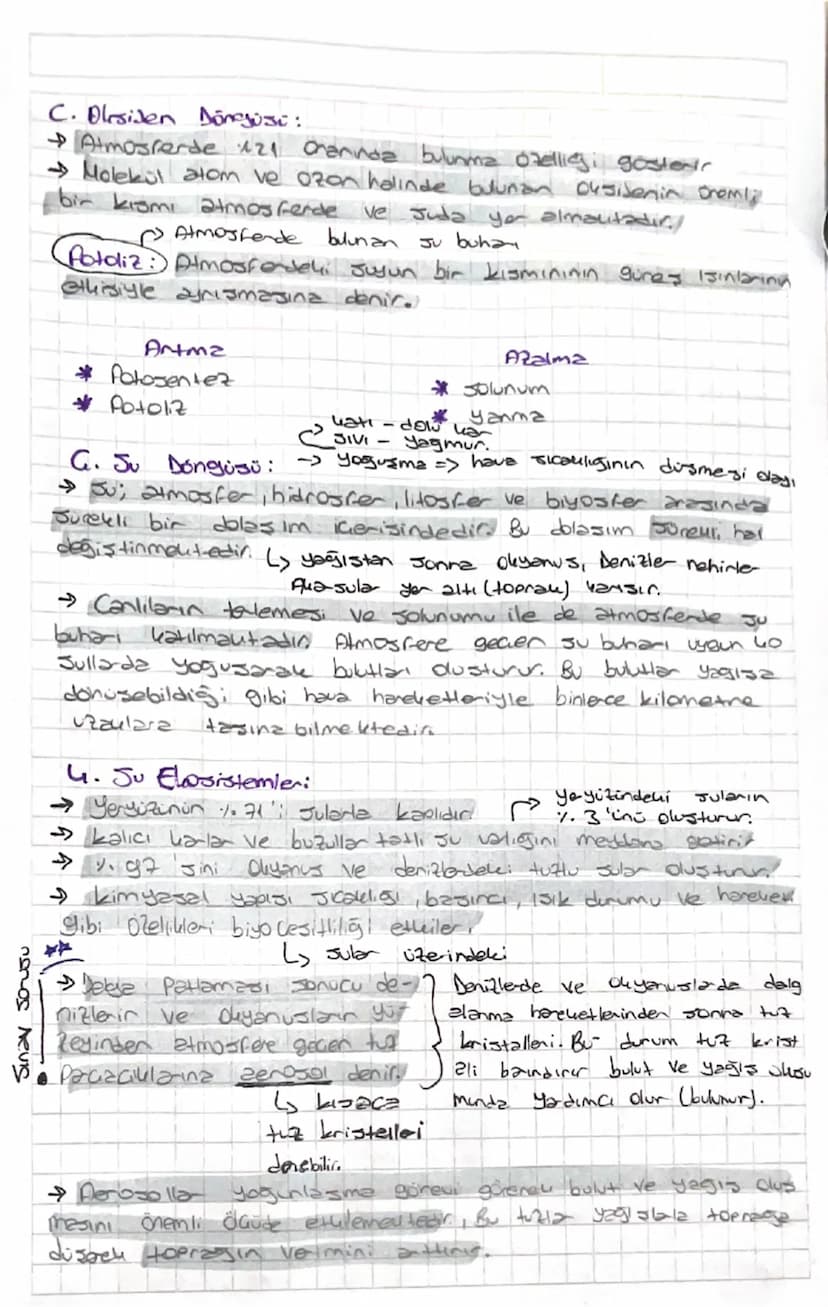 C. Oksijen Döngüsü:
→ Atmosferde %21 oranında bulunma özelliği gösterir
→ Molekül atom ve ozon halinde bulunan oksijenin önemli
bir kısmı atmosferde ve suda yer almaktadır.
↳ Atmosferde bulunan su buharı
Fotoliz: Atmosferdeki suyun bir kısmının güneş ışınlarının
etkisiyle ayrışmasına denir.
Artma
Azalma
* Fotosentez
* solunum
* Fotoliz
* yanma
katı - dolu kar
sıvı - yağmur.
Ç. Su Döngüsü: → yoğuşma => hava sıcaklığının düşmesi olayı
→ Su; atmosfer, hidrosfer, litosfer ve biyosfer arasında
sürekli bir dolaşım içerisindedir. Bu dolaşım sürekli hal
değiştirmektedir. ↳ yağıştan sonra okyanus, Denizler nehirler
Akarsular yer altı (toprak) karışır.
→ Canlıların terlemesi ve solunumu ile de atmosferde su
buharı katılmaktadır. Atmosfere geçen su buharı uygun ko
şullarda yoğuşarak bulutları oluşturur. Bu bulutlar yağışa
dönüşebildiği gibi hava hareketleriyle binlerce kilometre
uzaklara taşına bilmektedir.
4. Su Ekosistemleri
→ Yeryüzünün %71'i sularla kaplıdır.
↱ yeryüzündeki suların
%3'ünü oluşturur.
→ kalıcı karlar ve buzullar tatlı su varlığını meydana getirir
→ %97'sini Okyanus ve denizlerdeki tuzlu sular oluşturur.
→ kimyasal yapısı sıcaklığı, basıncı, ışık durumu ve hareket
gibi özellikleri biyoçeşitliliği etkiler.
↳ sular üzerindeki
** Sınav sorusu
→ Dalga Patlaması sonucu de-
nizlerin ve okyanusların yü-
zeyinden atmosfere geçen tuz
Parçacıklarına aerosol denir.
↳ kısaca
tuz kristalleri
denebilir.
Denizlerde ve okyanuslarda dalg
alanma hareketlerinden sonra tuz
kristalleri. Bu durum tuz krist
ali barındırır bulut ve yağış oluşu
munda yardımcı olur (bulunur).
→ Aerosoller yoğunlaşma görevi görerek bulut ve yağış oluş
masını önemli ölçüde etkilemektedir, Bu tuzlar yağışlarla toprağa
düşerek toprağın verimini arttırır.